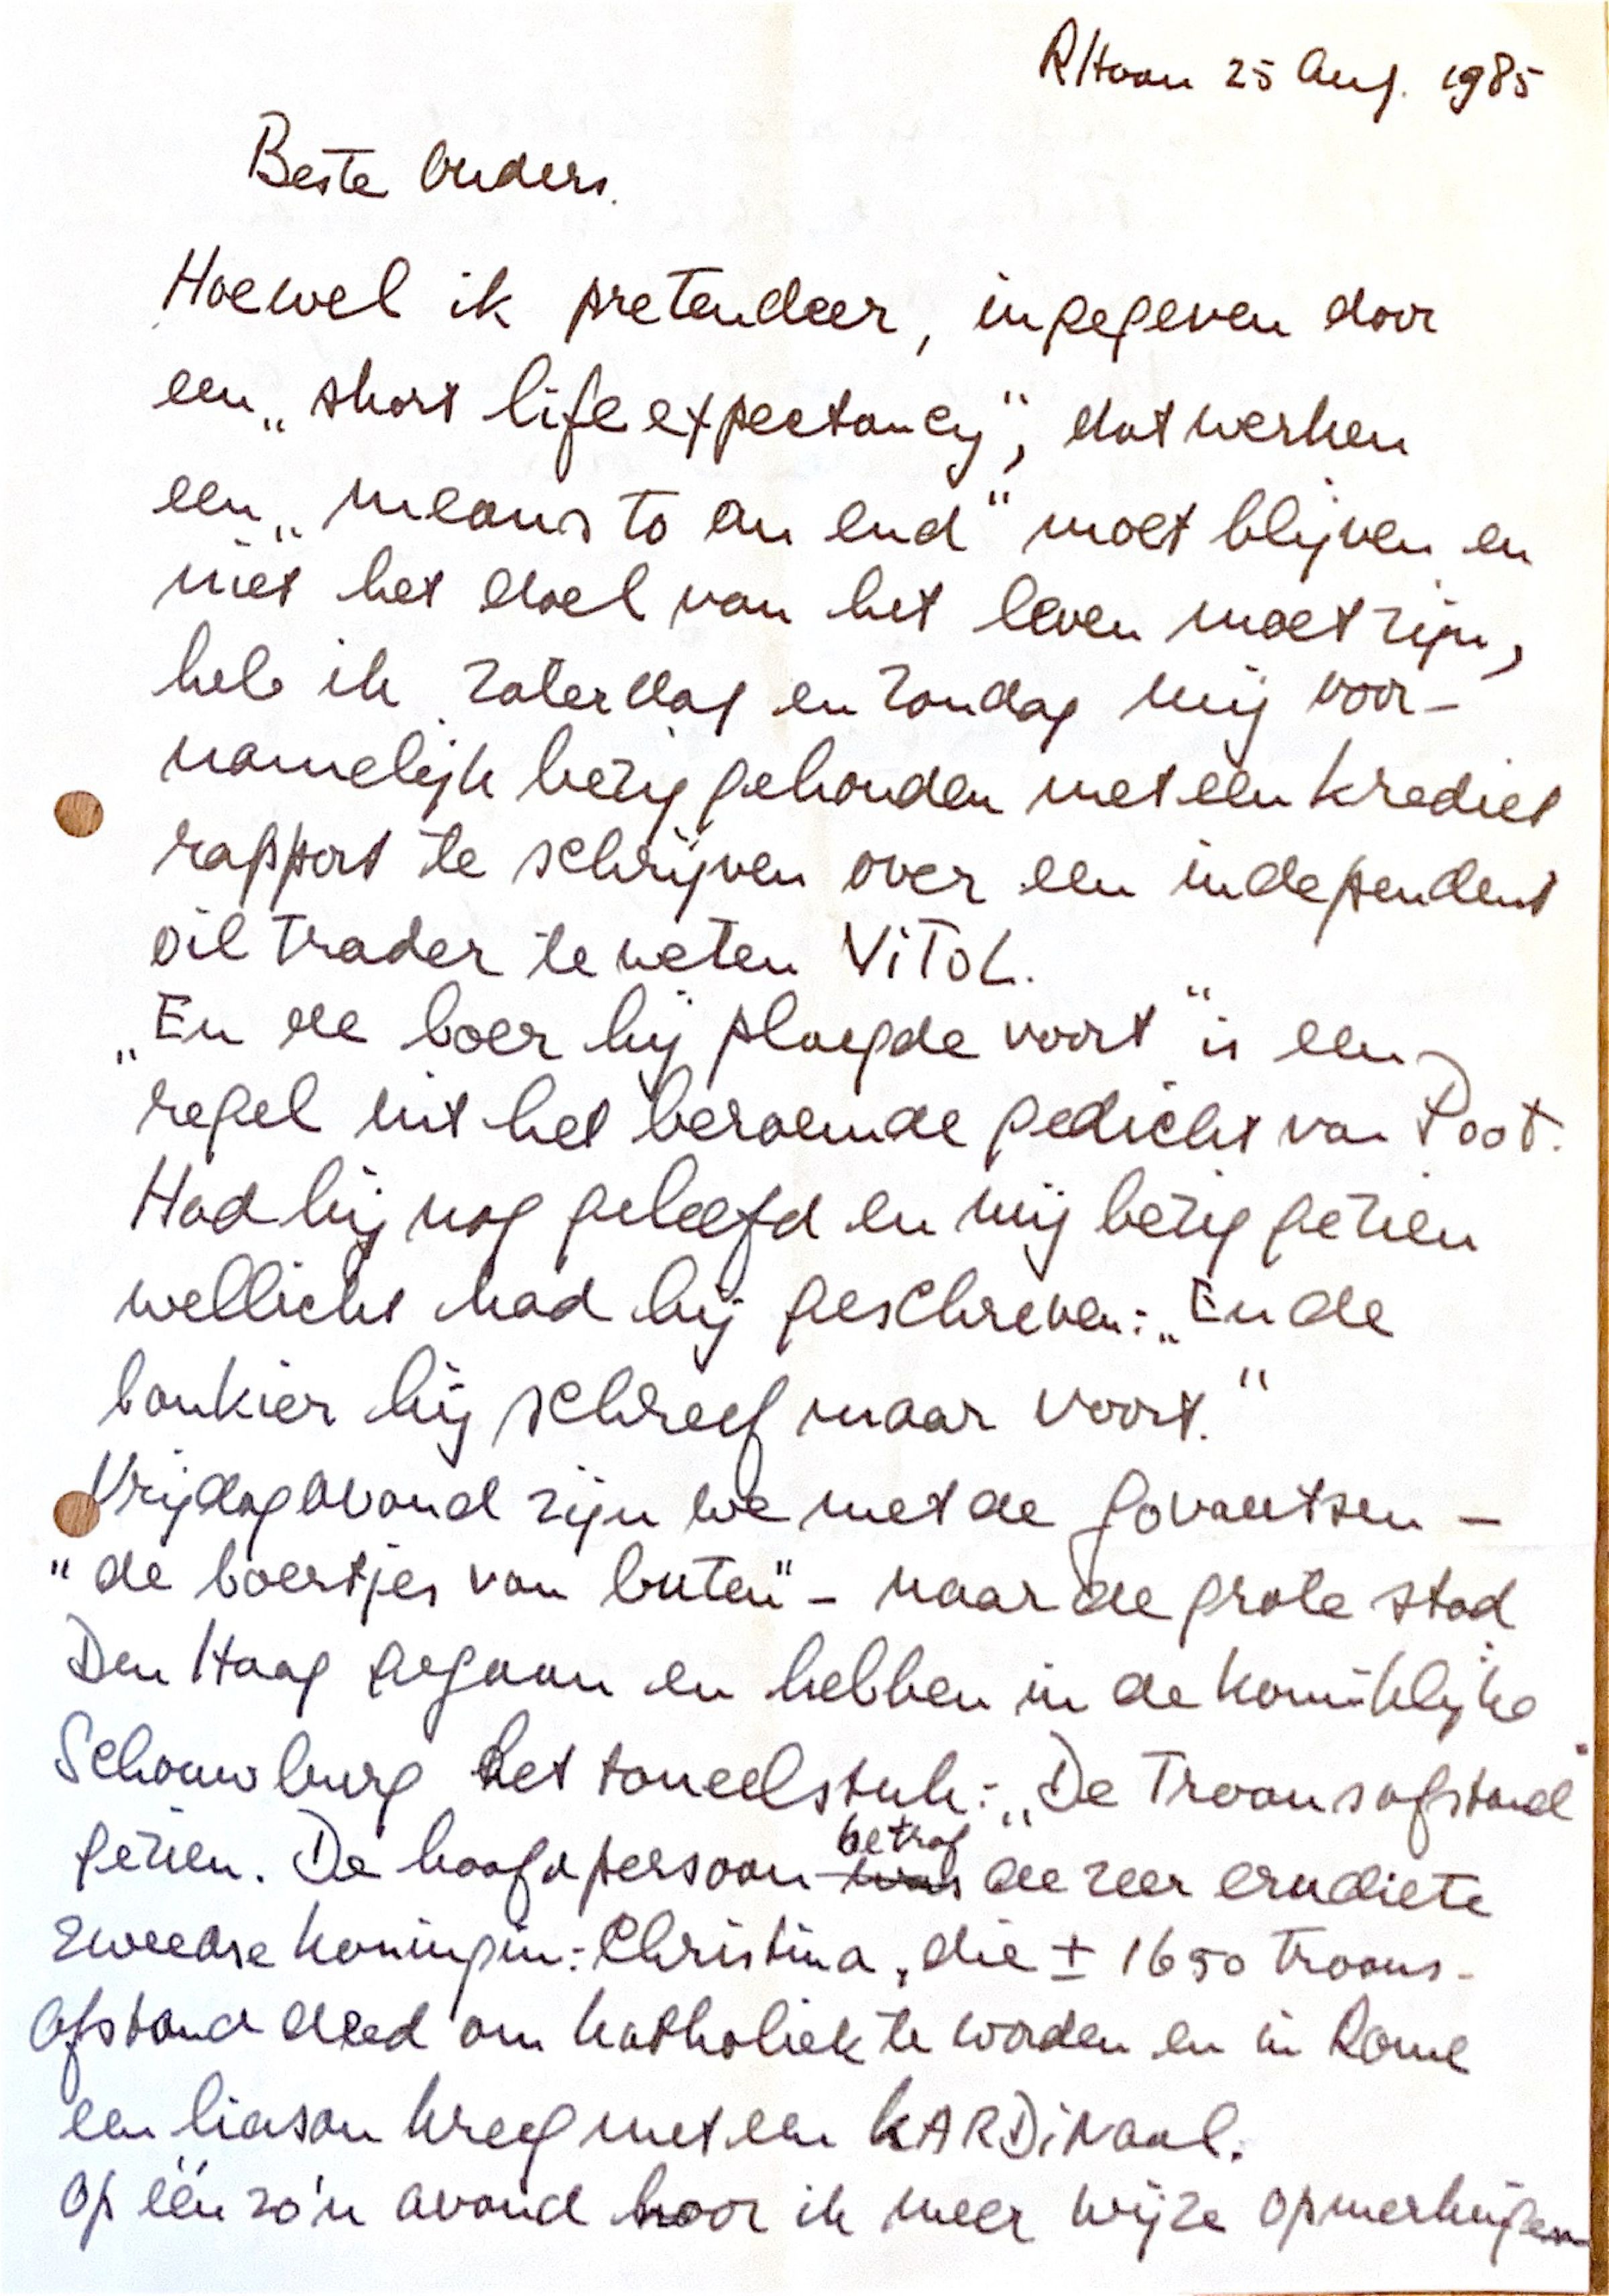 R/Haan 25 Aug. 1985
Beste Ouders.
Hoewel ik pretendeer, ingegeven door
een „short life expectancy“, dat werken
een „means to an end“ moet blijven en
niet het doel van het leven moet zijn,
heb ik zaterdag en zondag mij voor-
namelijk bezig gehouden met een krediet
rapport te schrijven over een independent
oil trader te weten ViToL.
„En de boer hij ploegde voort“ is een
regel uit het beroemde gedicht van Poot.
Had hij nog geleefd en mij bezig gezien
wellicht had hij geschreven: „En de
bankier hij schreef maar voort.“
Vrijdagavond zijn we met de Govaertsen –
"de boertjes van buten" – naar de grote stad
Den Haag gegaan en hebben in de Koninklijke
Schouwburg het toneelstuk: „De Troonsafstand“
gezien. De hoofdpersoon betrof de zeer erudiete
zweedse koningin: Christina, die ± 1650 troons-
afstand deed om katholiek te worden en in Rome
een liason kreeg met een KARDiNaal.
Op één zo'n avond hoor ik meer wijze opmerkingen